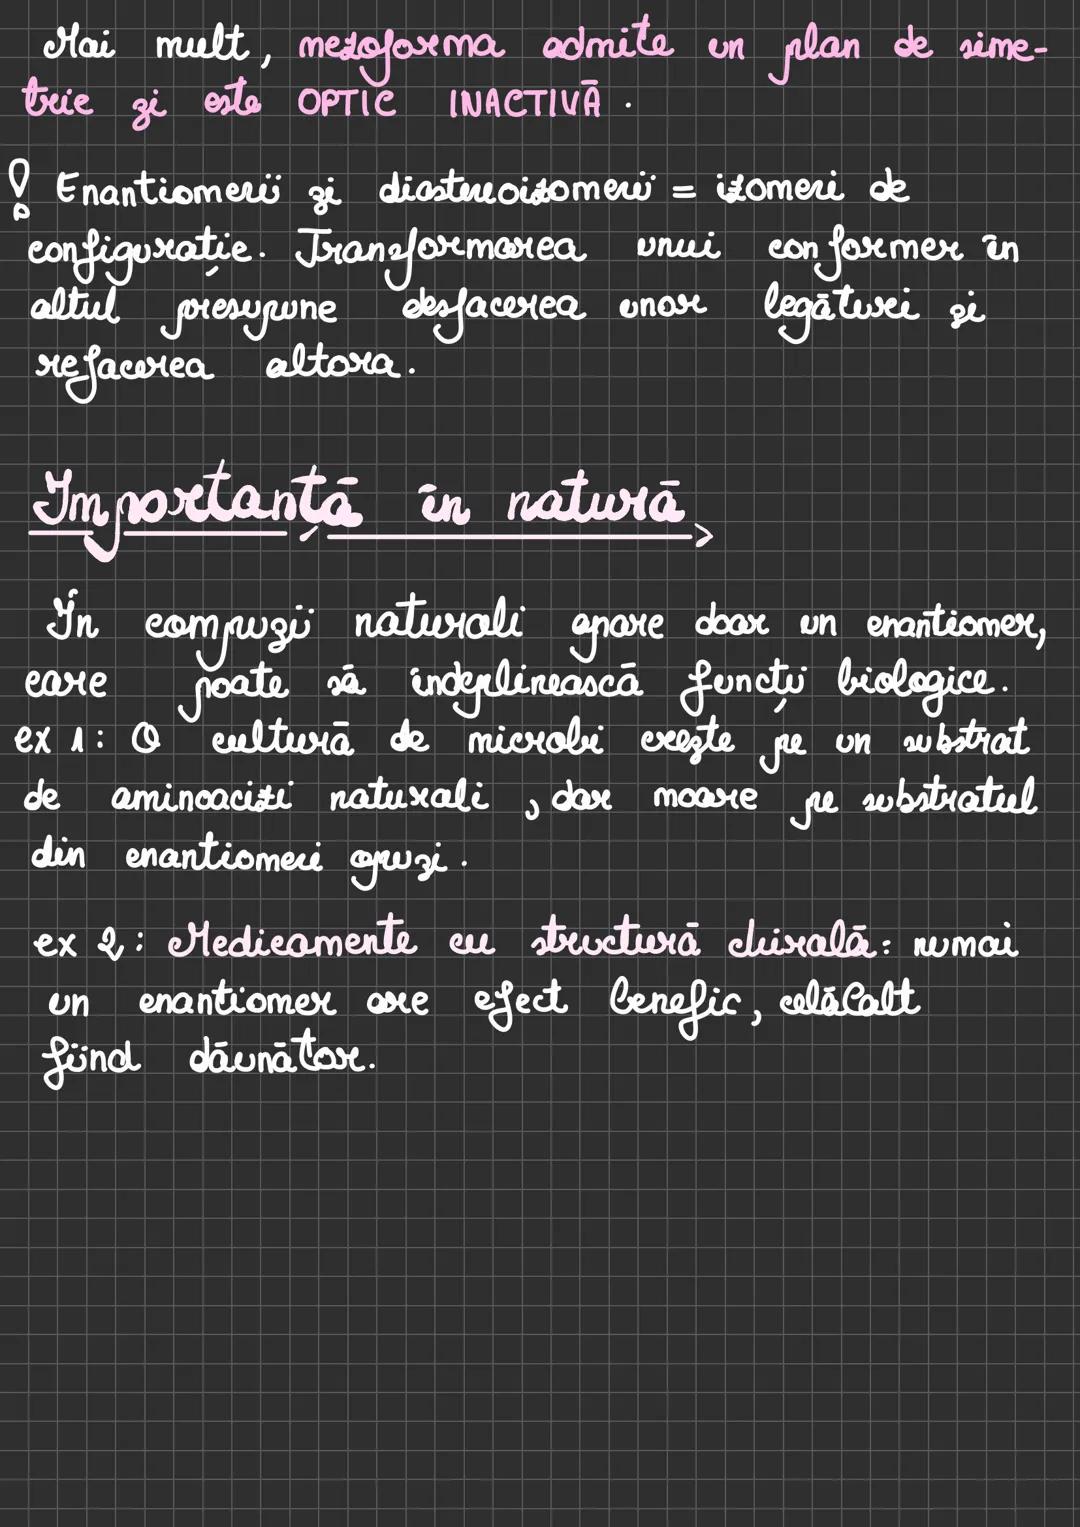 Mai mult, mezoforma admite un plan de sime-
trie și este OPTIC INACTIVĂ.
! Enantiomerii și diastereoizomerii = izomeri de
configurație. Transformarea unui conformer în
altul presupune desfacerea unor legături și
refacerea altora.
Importanță în natură
În compuzii naturali apare doar un enantiomer,
care poate să îndeplinească funcții biologice.
ex 1: O cultură de microbi crește pe un substrat
de aminoacizi naturali, dar moare pe substratul
din enantiomeri opuși.
ex 2: Medicamente cu structură chirală: numai
un enantiomer are efect benefic, celălalt
fiind dăunător.